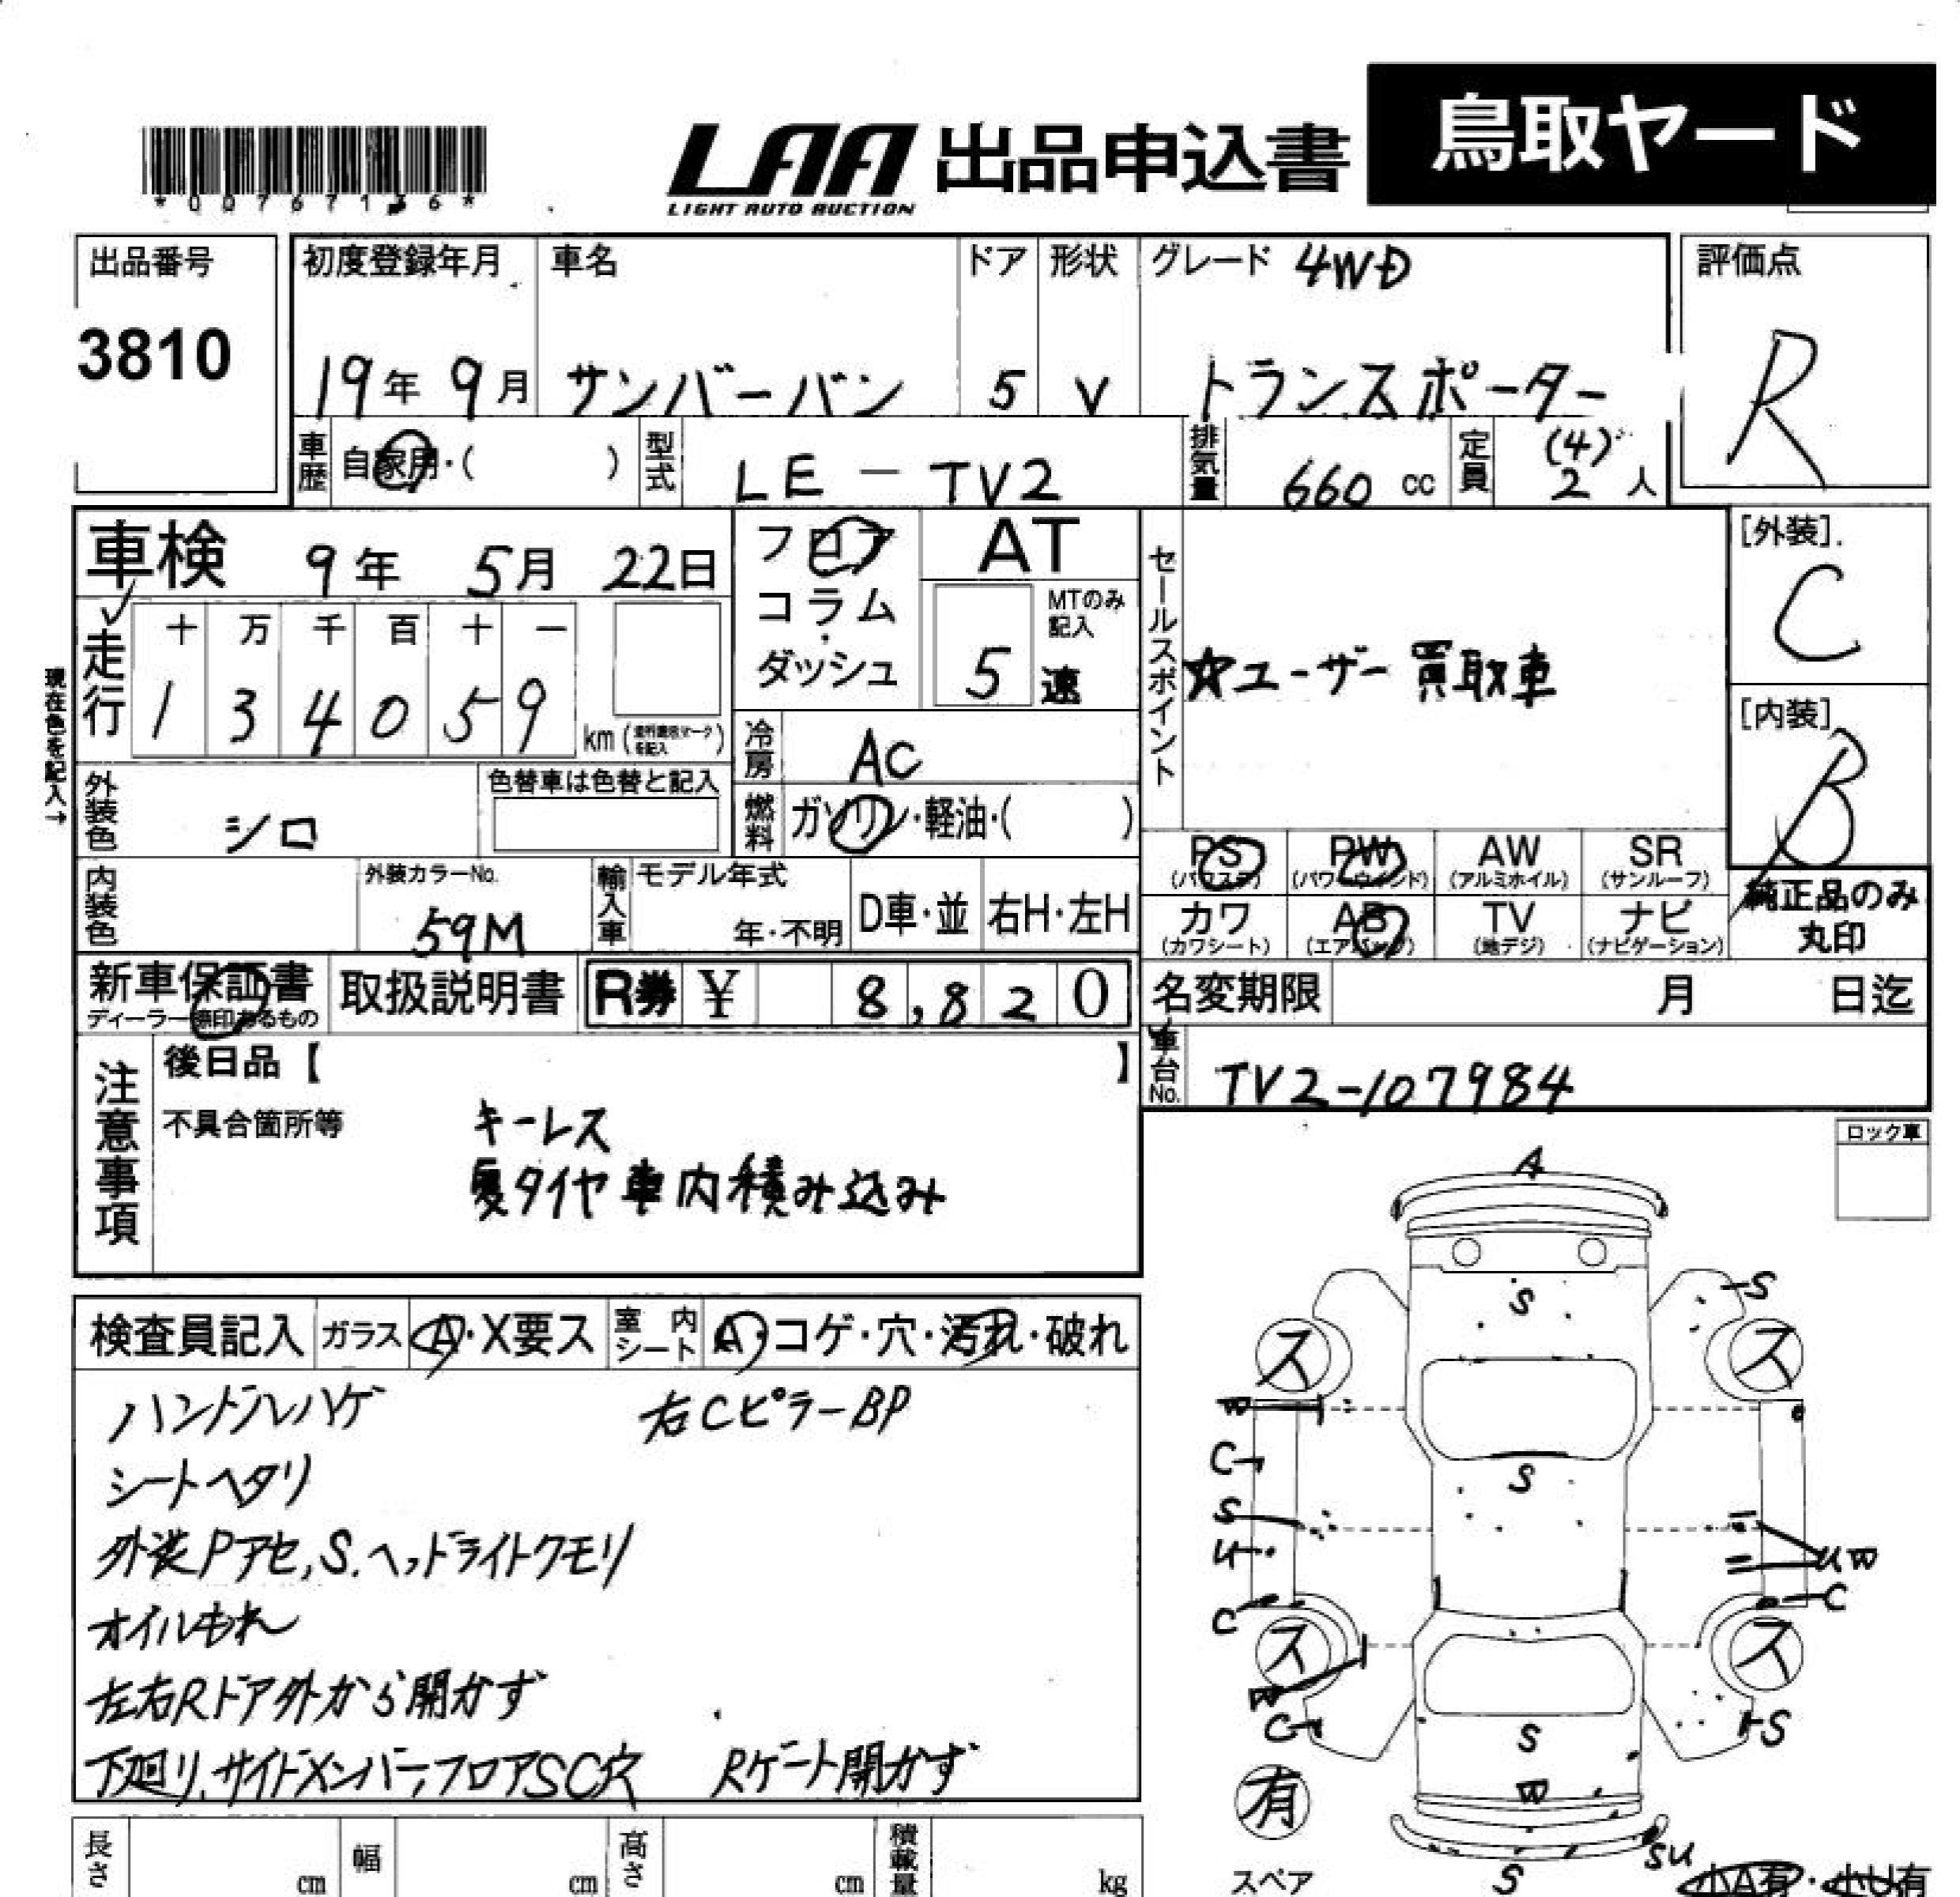 鳥取ヤード
LAA 出品申込書
LIGHT AUTO AUCTION
*0076713 6*
出品番号
3810
初度登録年月
19年 9月
車名
サンバーバン
ドア
5
形状
V
グレード 4WD
トランスポーター
評価点
R
車歴 自家用・( )
型式 LE-TV2
排気量 660 cc
定員 (4)
2 人
車検 9年 5月 22日
フロア
コラム
・
ダッシュ
AT
MTのみ
記入
5 速
セールスポイント
☆ユーザー買取車
[外装]
C
[内装]
B
走行
十 万 千 百 十 一
1 3 4 0 5 9
km
現在色を記入→
冷房 AC
外装色 シロ
色替車は色替と記入
燃料 ガソリン・軽油・( )
PS
(パワステ)
PW
(パワーウインド)
AW
(アルミホイル)
SR
(サンルーフ)
カワ
(カワシート)
AB
(エアバッグ)
TV
(地デジ)
ナビ
(ナビゲーション)
純正品のみ
丸印
内装色
外装カラーNo.
59M
輸入車
モデル年式
年・不明
D車・並
右H・左H
新車保証書
ディーラー捺印あるもの
取扱説明書
R券 ¥ 8,820
名変期限 月 日迄
車台No. TV2-107984
注意事項
後日品【 】
不具合箇所等
キーレス
夏タイヤ車内積み込み
ロック車
検査員記入 ガラス A・X要ス 室内シート A・コゲ・穴・汚れ・破れ
ハンドルハゲ 右CピラーBP
シートヘタリ
外装Pアセ,S.ヘッドライトクモリ
オイルもれ
左右Rドア外から開かず
下廻り,サイドメンバー,フロアSC穴 Rゲート開かず
A
S
S
ス
ス
W
C
S
S
U
UW
C
C
ス
ス
W
C
S
S
W
有
スペア
SU
S
小A有・小U有
長さ cm
幅 cm
高さ cm
積載量 kg